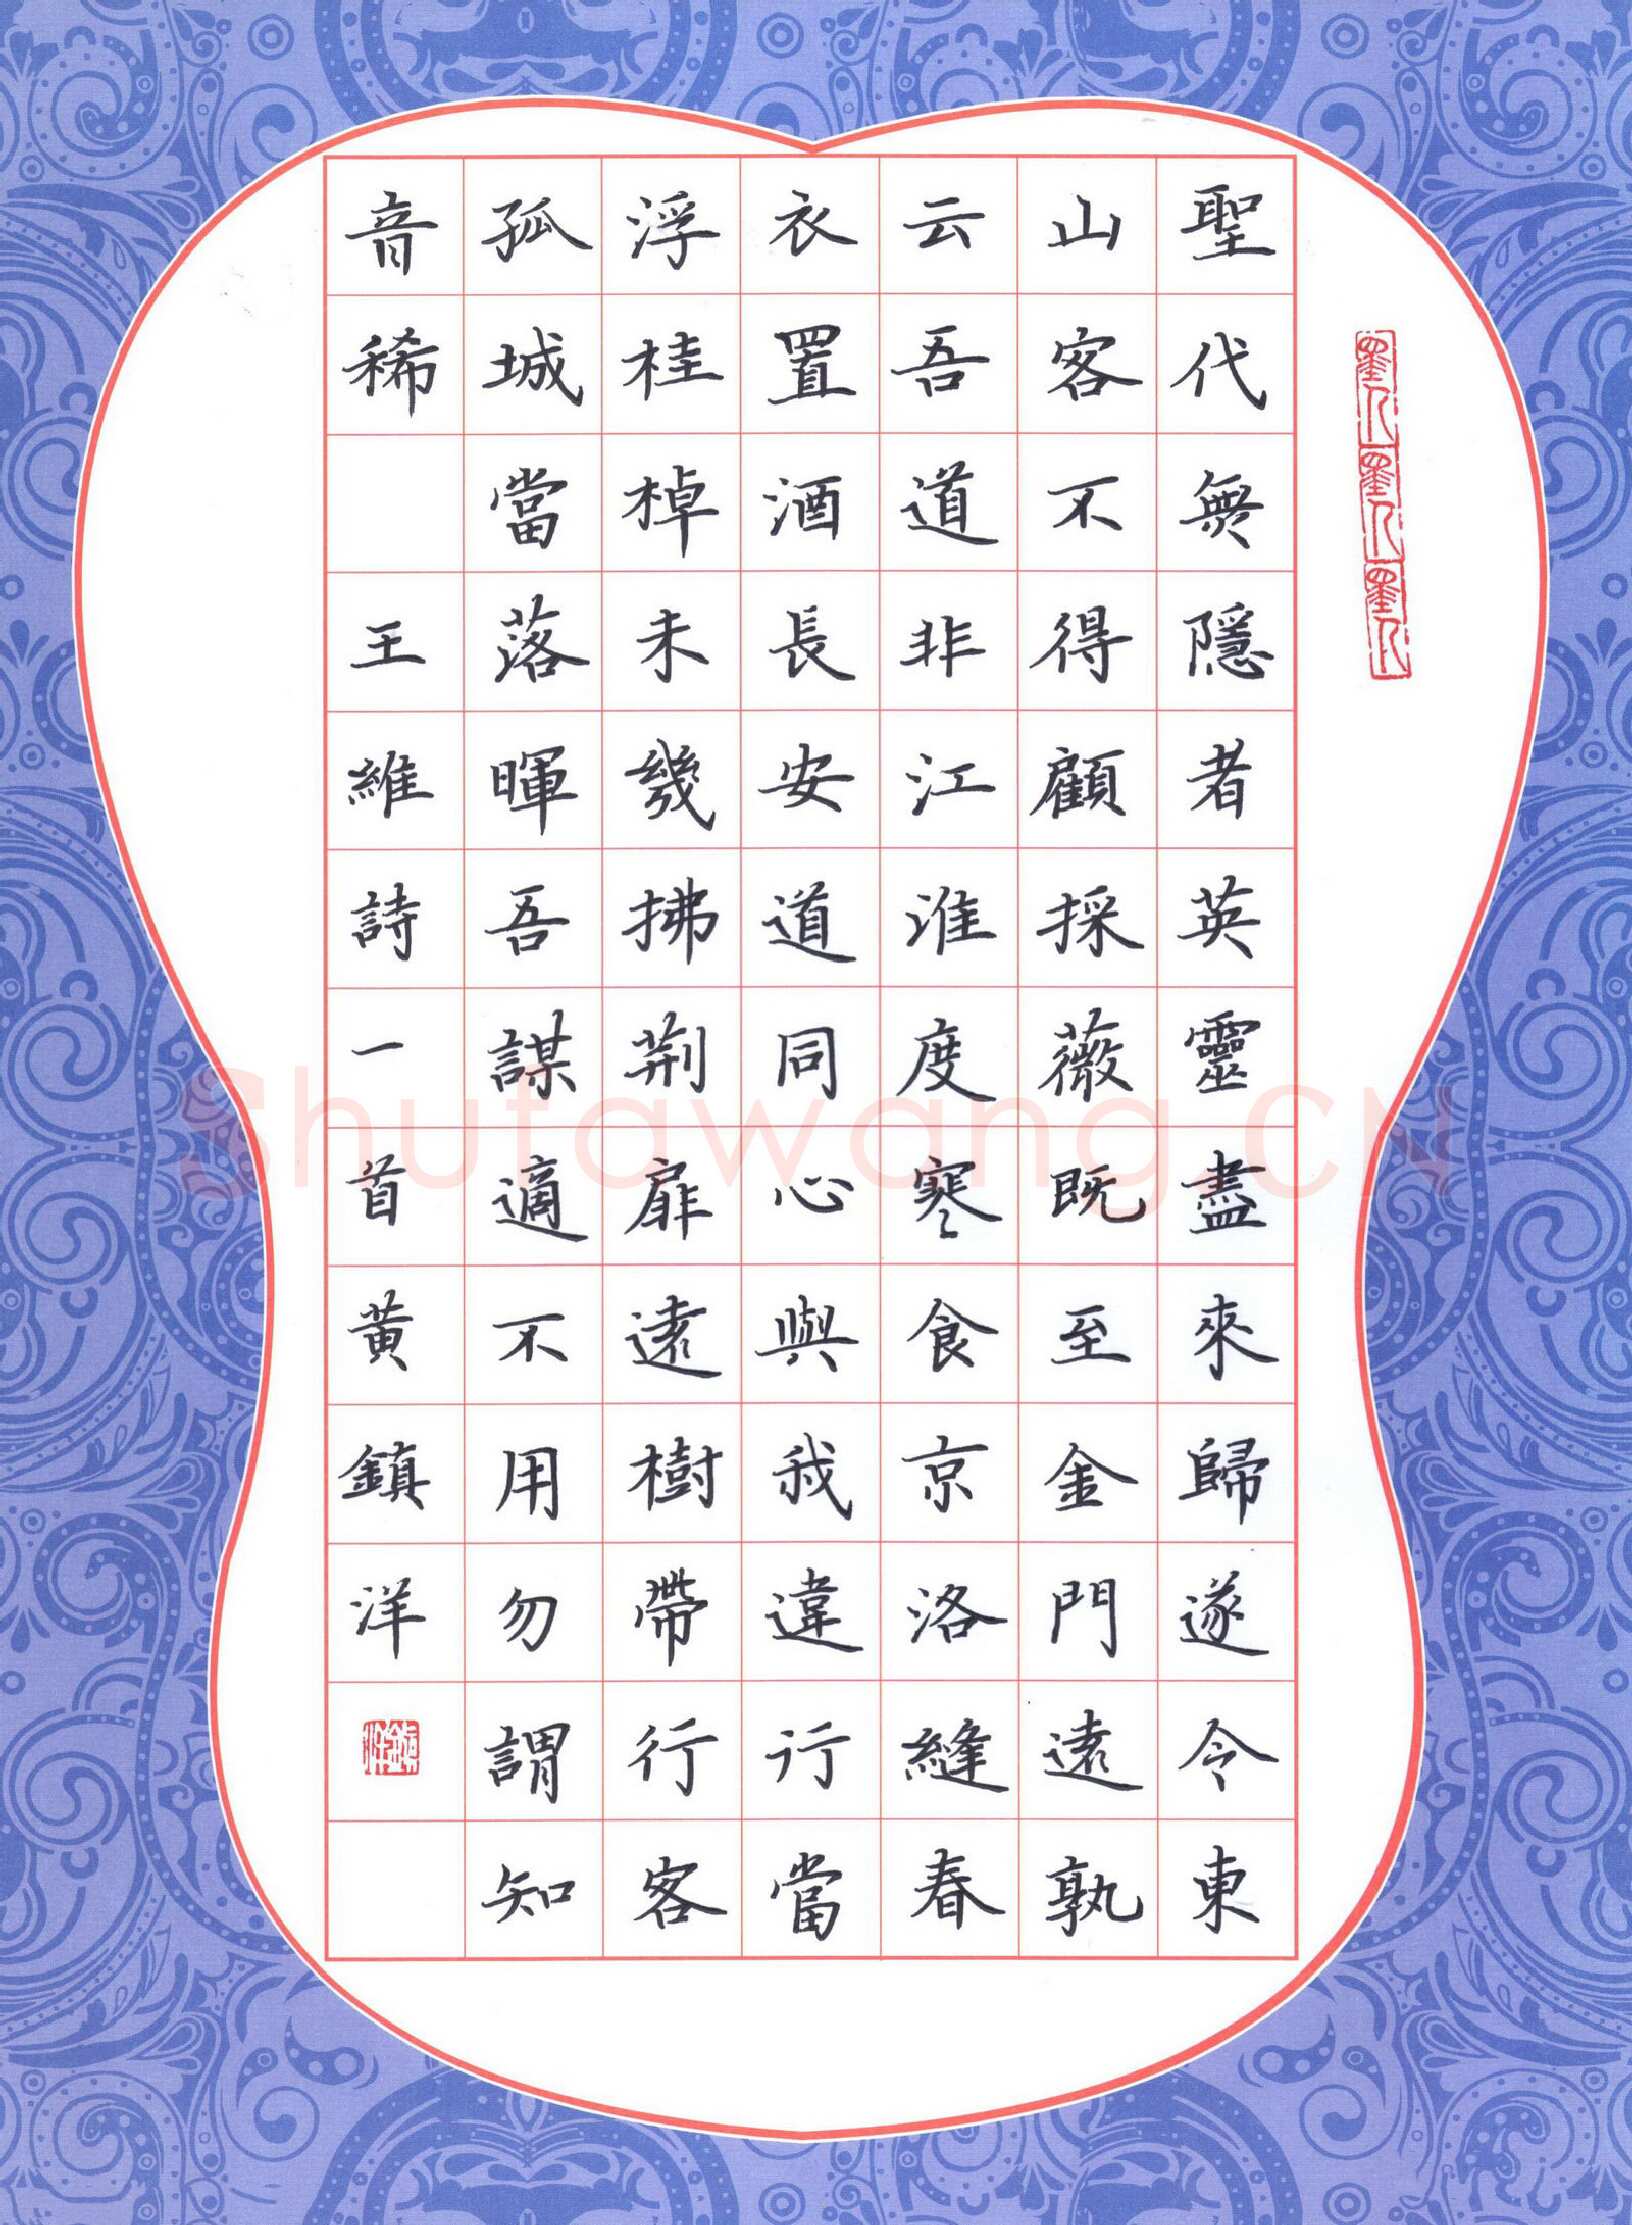 聖代無隱者英靈盡來歸遂令東
山客不得顧採薇既至金門遠孰
云吾道非江淮度寒食京洛縫春
衣置酒長安道同心與我違行當
浮桂棹未幾拂荆扉遠樹帶行客
孤城當落暉吾謀適不用勿謂知
音稀 王維詩一首黄鎮洋
鎮洋
Shufawang.CN